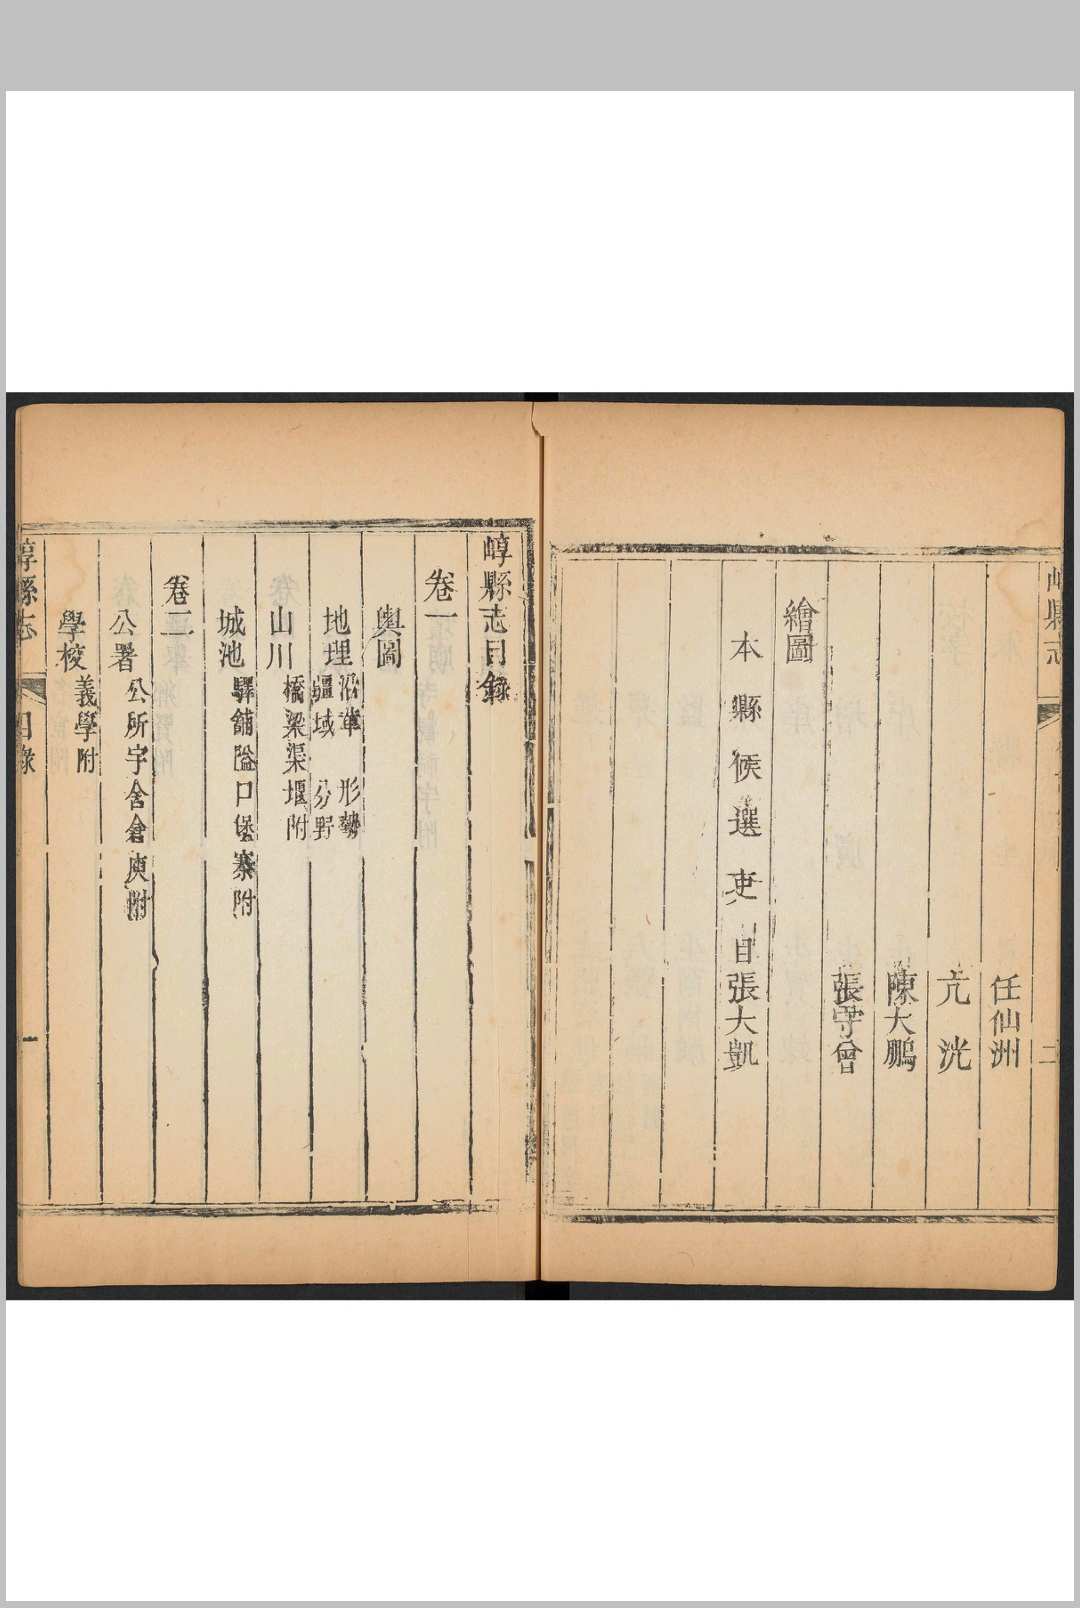 崞縣志
二
任仙洲
亢洸
陳大鵬
張守曾
繪圖
本縣候選吏目張大凱
崞縣志目錄
卷一
輿圖
地理 沿革 形勢
疆域 分野
山川 橋梁渠堰附
城池 驛舖隘口堡寨附
卷二
公署 公所宇舍倉庾附
學校 義學附
崞縣志
目錄
一